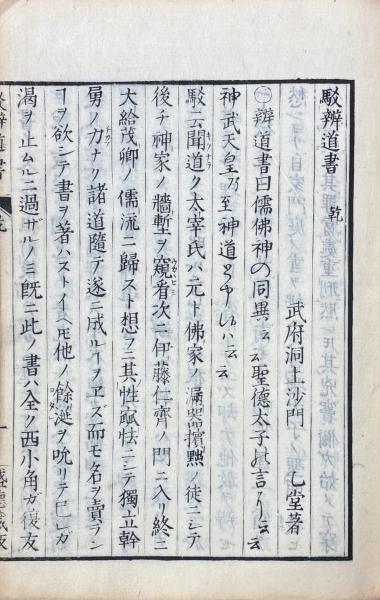 駁辨道書 乾
武府洞上沙門 七堂著
辨道書曰儒佛神の同異云云聖德太子の言より云云
神武天皇乃至神道と申は云云
駁云聞道ク太宰氏ハ元ト佛家ノ漏器擯黜ノ徒ニシテ
後チ神家ノ牆塹ヲ窺看次ニ伊藤仁齊ノ門ニ入リ終ニ
大給茂卿ノ儒流ニ歸スト想フニ其性 怯ニシテ獨立幹
勇ノ力ナク諸道隨テ遂ニ成ルヿヲヱズ而モ名ヲ賣ラン
ヿヲ欲シテ書ヲ著ハストイヘ𪜈他ノ餘涎ヲ吮リテ己レガ
渴ヲ止ムルニ過ザルノミ既ニ此ノ書ハ全ク西小角ガ復友
駁辨道書 乾 一